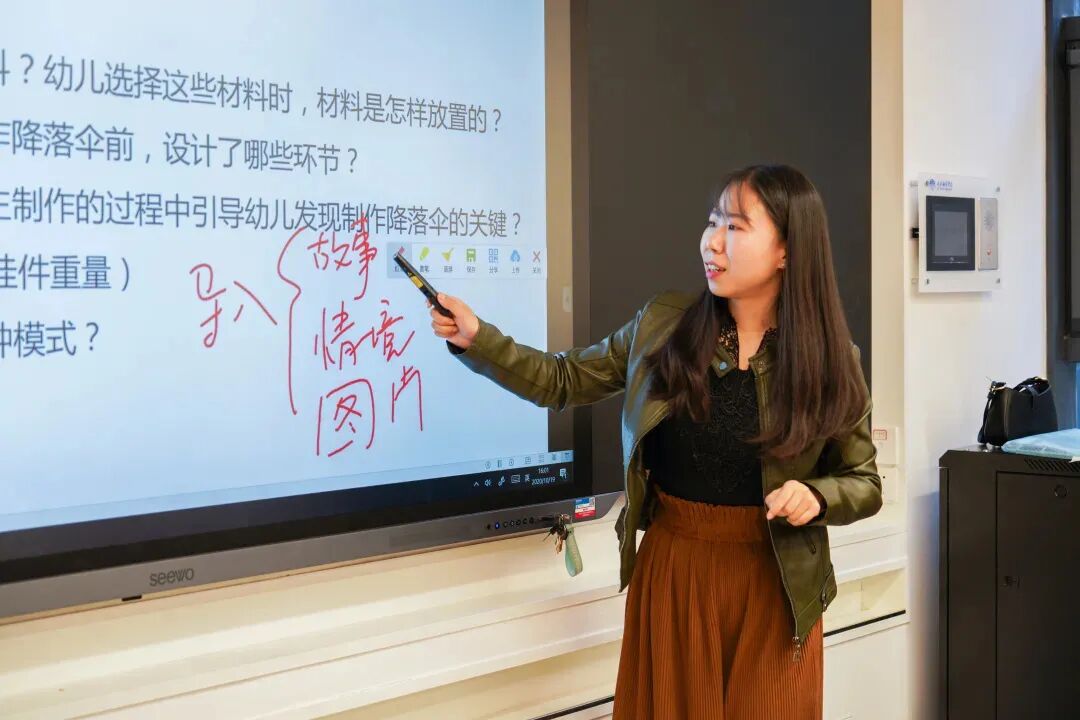 ？幼儿选择这些材料时，材料是怎样放置的？
降落伞前，设计了哪些环节？
制作的过程中引导幼儿发现制作降落伞的关键？
件重量）
模式？
导入
故事
情境
图片
保存
分享
上传
关闭
16:01
英
2020/10/19
seewo